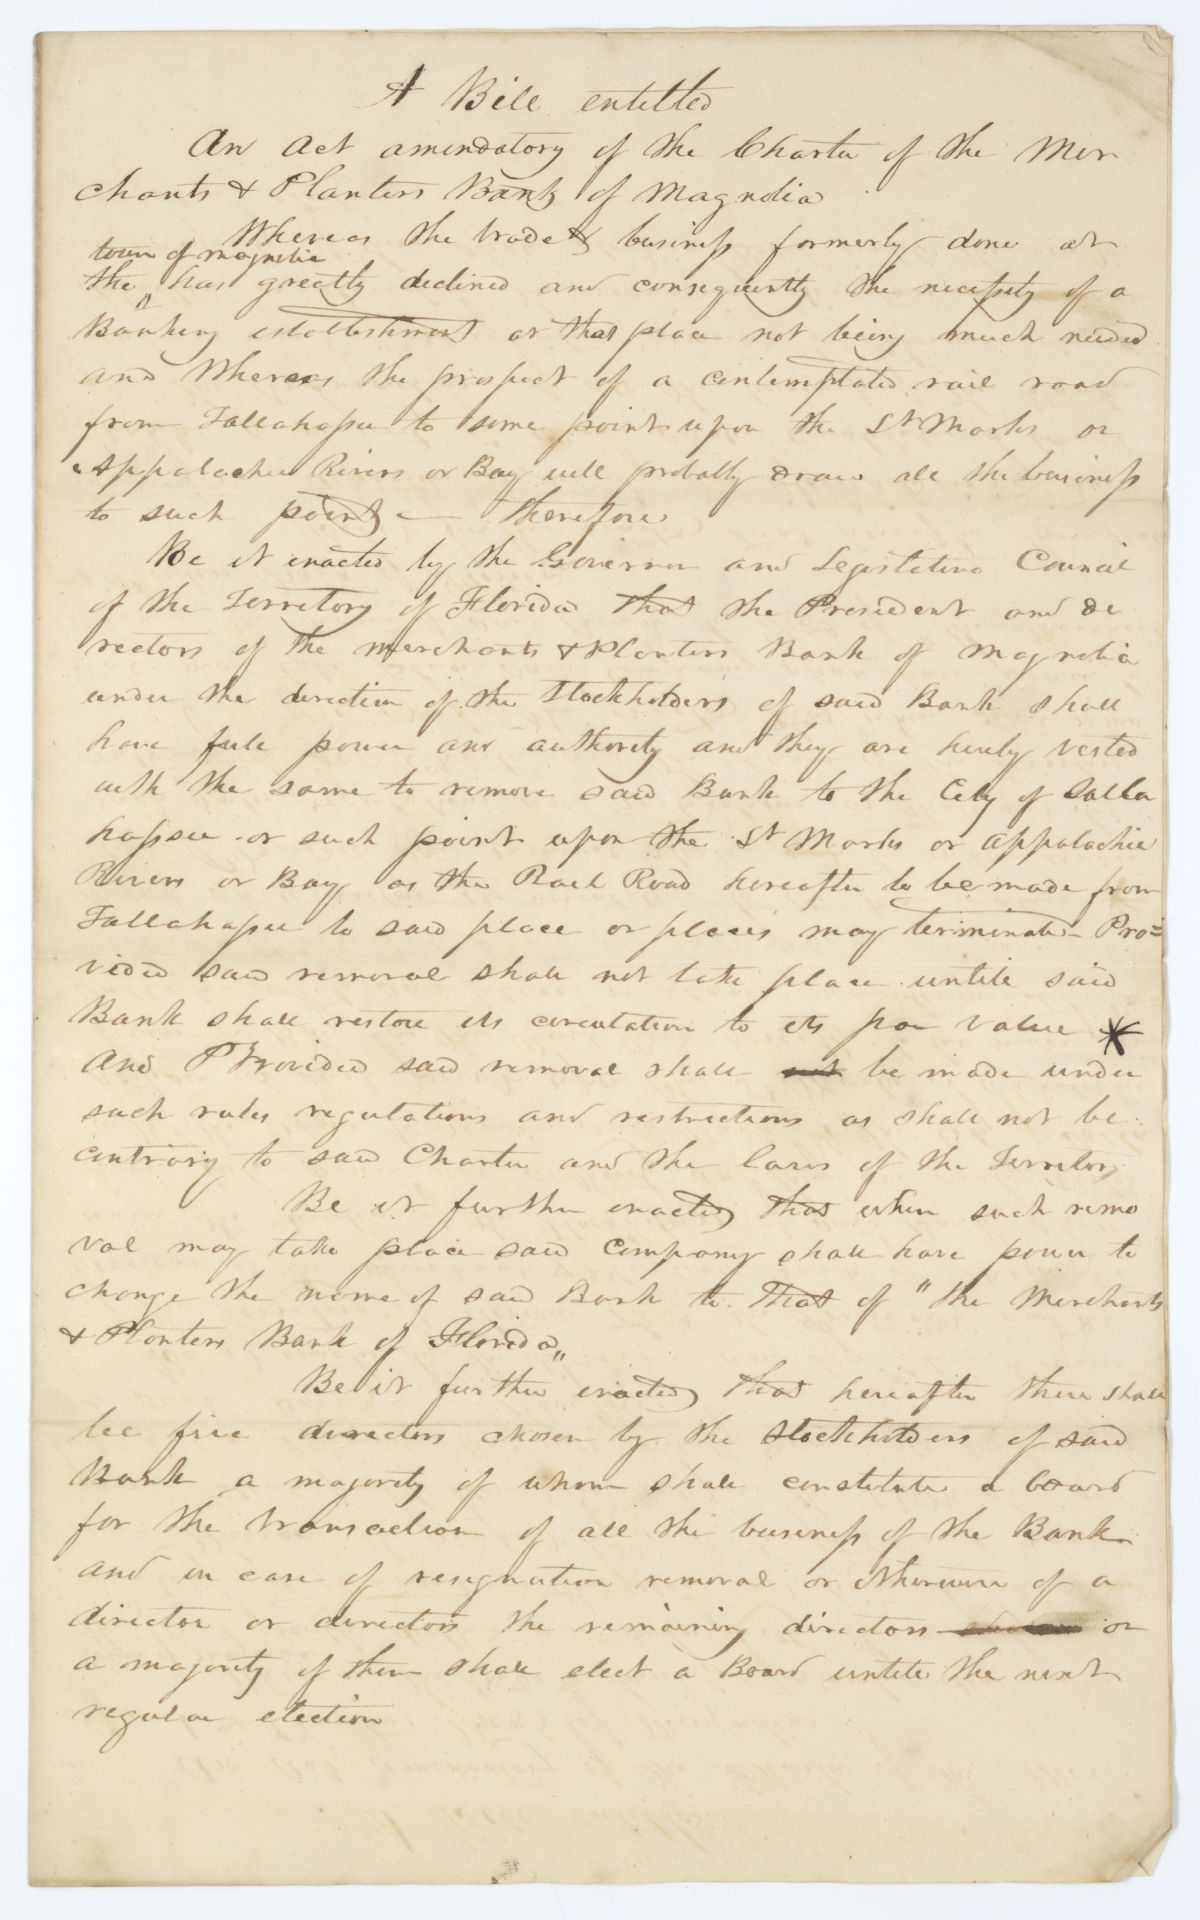 A Bill entitled
An Act amendatory of the Charter of the Mer
chants & Planters Bank of Magnolia
Whereas the trade & business formerly done at
town of magnolia
the has greatly declined and consequently the necessity of a
Banking establishment at that place not being much needed
and Whereas the prospect of a contemplated rail road
from Tallahassee to some point upon the St Marks or
Appalachie Rivers or Bay will probably draw all the business
to such point — therefore
Be it enacted by the Governor and Legislative Council
of the Territory of Florida That the President and di
rectors of the merchants & Planters Bank of Magnolia
under the direction of the Stockholders of said Bank shall
have full power and authority and they are hereby vested
with the same to remove said Bank to the City of Talla
hassee or such point upon the St Marks or Appalachie
Rivers or Bay as the Rail Road hereafter to be made from
Tallahassee to said place or places may terminate Pro=
vided said removal shall not take place untill said
Bank shall restore its circulation to its par value *
And Provided said removal shall not be made under
such rules regulations and restrictions as shall not be
contrary to said Charter and the laws of the Territory
Be it further enacted that when such remo
val may take place said company shall have power to
change the name of said Bank to That of "the Merchants
& Planters Bank of Florida„
Be it further enacted that hereafter there shall
be five directors chosen by the Stockholders of said
Bank a majority of whom shall constitute a board
for the transaction of all the business of the Bank
and in case of resignation removal or otherwise of a
director or directors the remaining directors or
a majority of them shall elect a Board untill the next
regular election